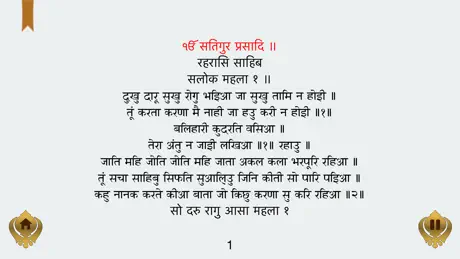 ੴ सतिगुर प्रसादि ॥
रहरासि साहिब
सलोक महला १ ॥
दुखु दारू सुखु रोगु भइआ जा सुखु तामि न होई ॥
तूं करता करणा मै नाही जा हउ करी न होई ॥१॥
बलिहारी कुदरति वसिआ ॥
तेरा अंतु न जाई लखिआ ॥१॥ रहाउ ॥
जाति महि जोति जोति महि जाता अकल कला भरपूरि रहिआ ॥
तूं सचा साहिबु सिफति सुआलि्उ जिनि कीती सो पारि पइआ ॥
कहु नानक करते कीआ बाता जो किछु करणा सु करि रहिआ ॥२॥
सो दरु रागु आसा महला १
1